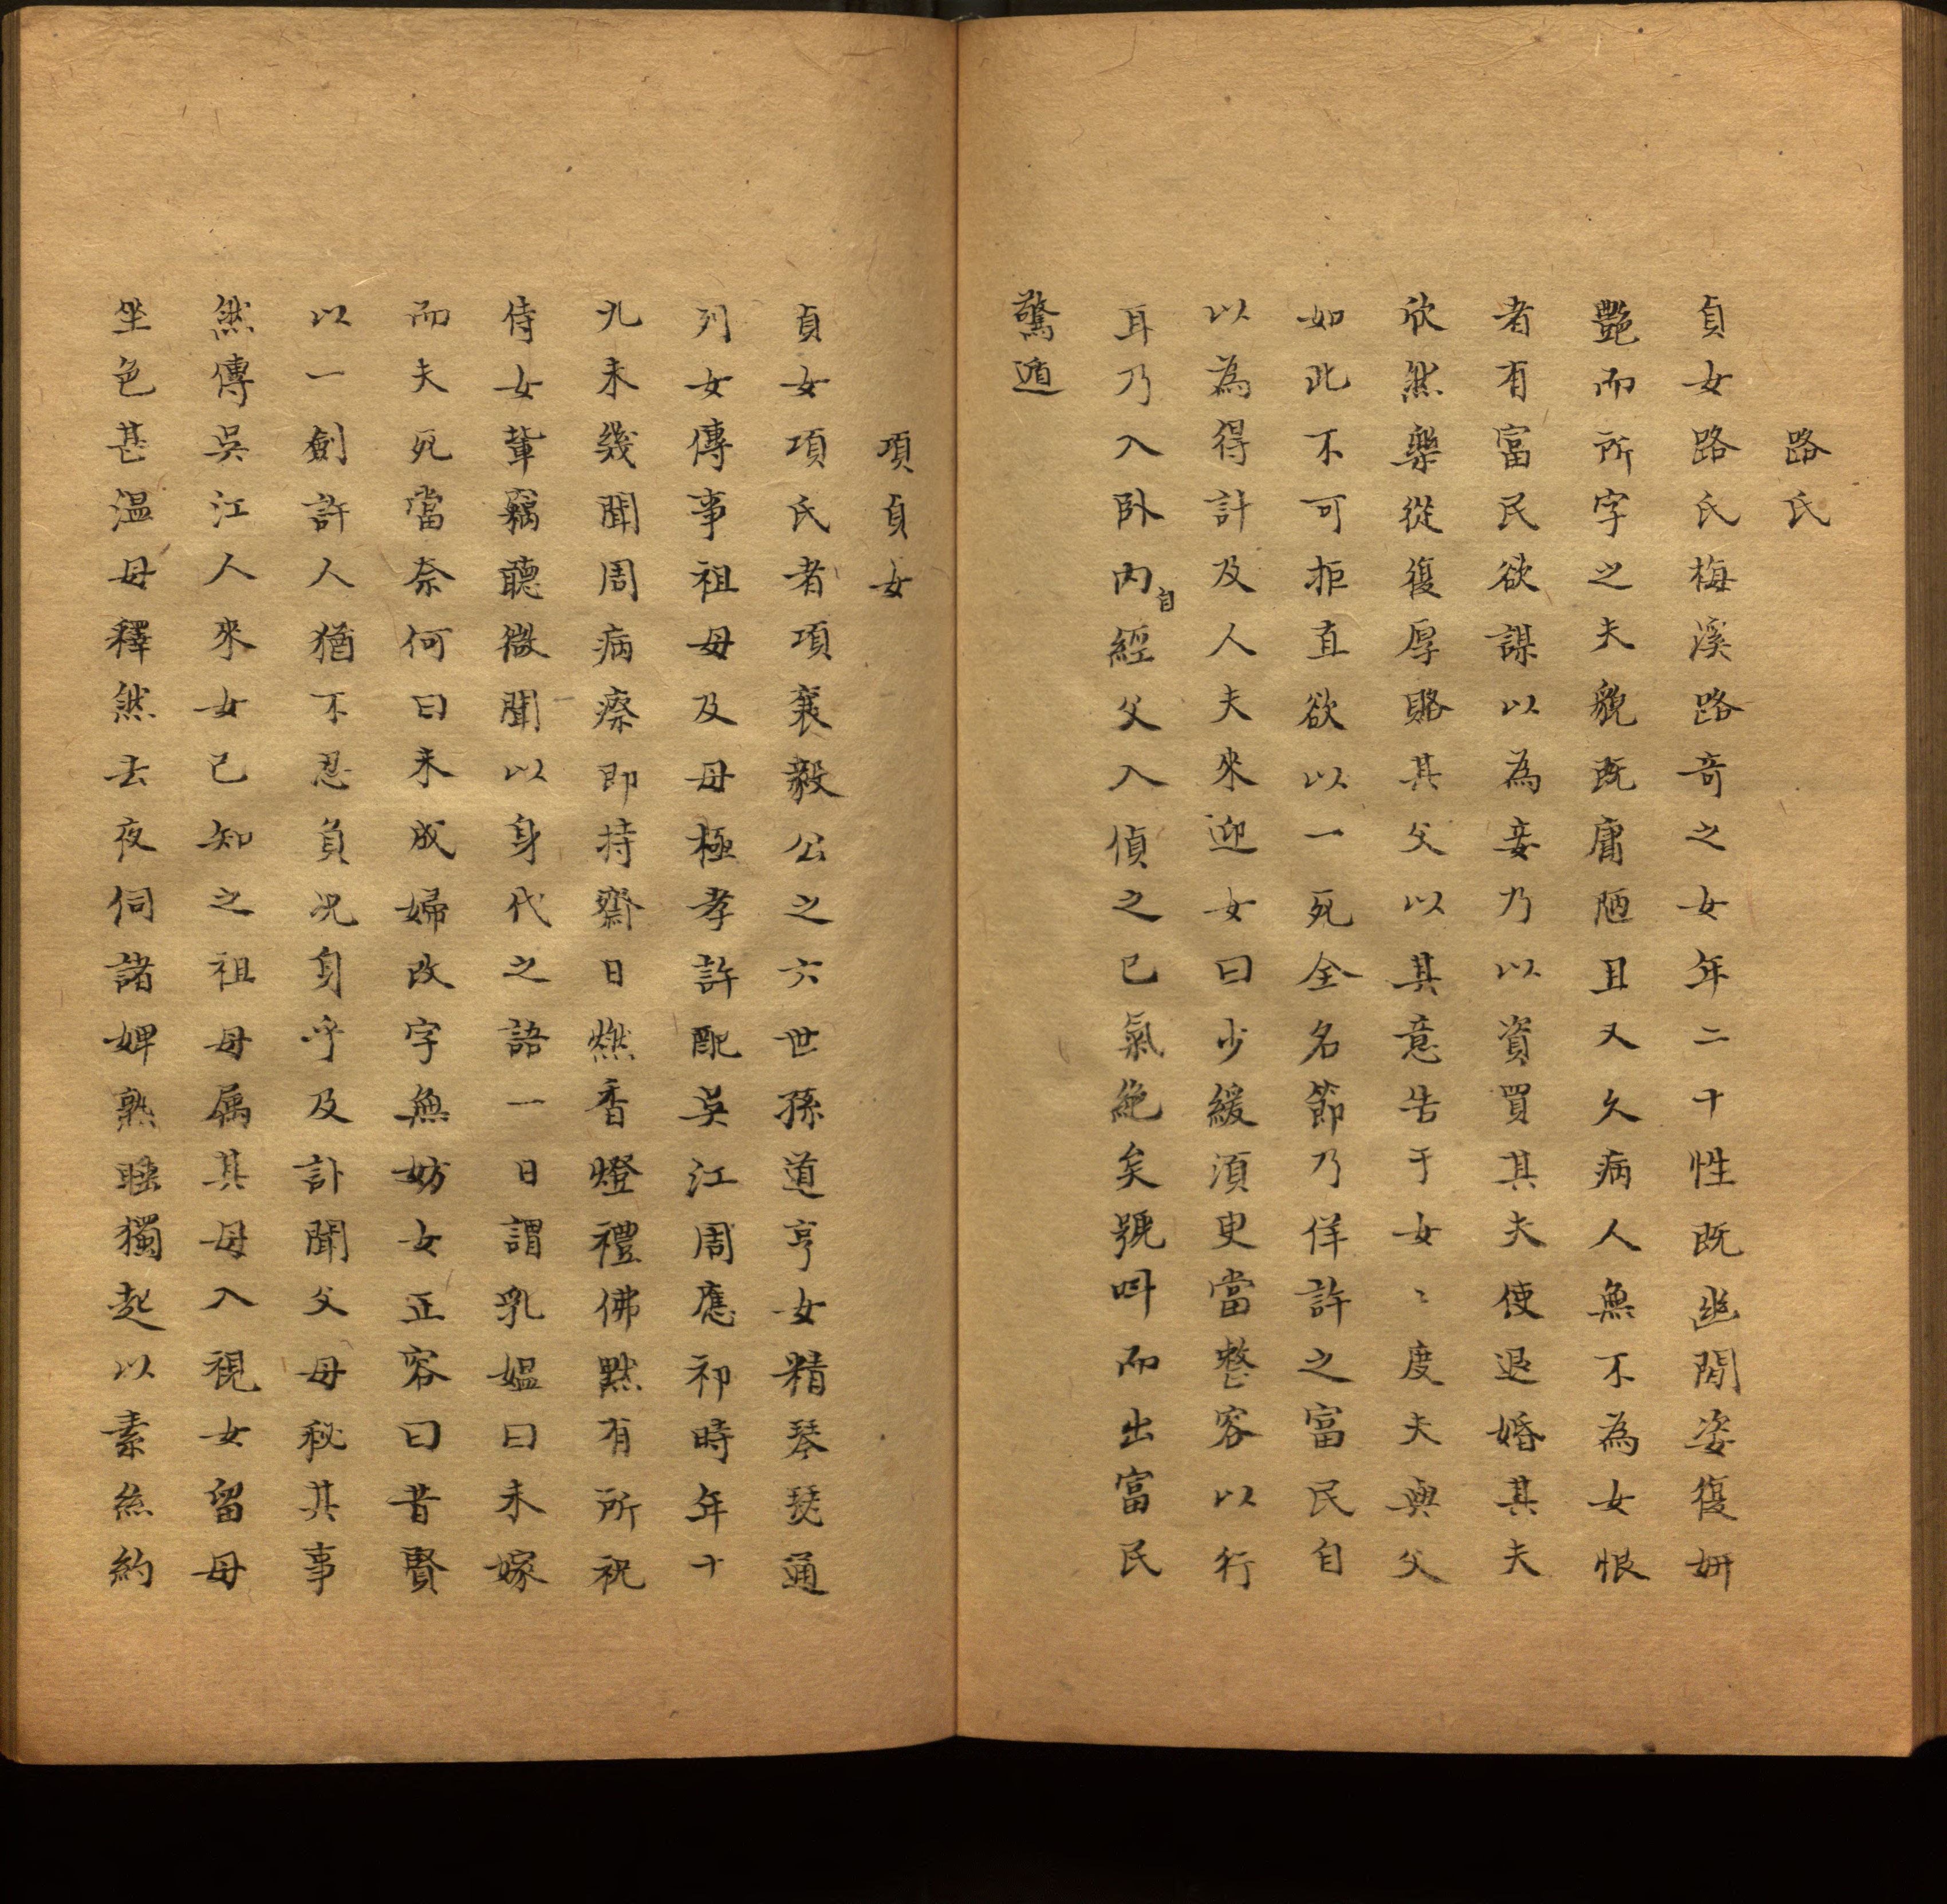 路氏
貞女路氏梅溪路奇之女年二十性既幽閒姿復妍
艷而所字之夫貌既庸陋且又久病人無不為女恨
者有富民欲謀以為妾乃以資買其夫使退婚其夫
欣然樂從復厚賂其父以其意告于女〻度夫與父
如此不可拒直欲以一死全名節乃佯許之富民自
以為得計及人夫來迎女曰少緩須臾當整容以行
耳乃入卧內自經父入偵之已氣絶矣號叫而出富民
驚遁
項貞女
貞女項氏者項襄毅公之六世孫道亨女精琴瑟通
列女傳事祖母及母極孝許配吳江周應祁時年十
九未幾聞周病瘵即持齋日燃香燈禮佛默有所祝
侍女輩竊聽微聞以身代之語一日謂乳媼曰未嫁
而夫死當奈何曰未成婦改字無妨女正容曰昔賢
以一劍許人猶不忍負況身乎及訃聞父母秘其事
然傳吳江人來女已知之祖母属其母入視女留母
坐色甚温母釋然去夜伺諸婢熟睡獨起以素絲約